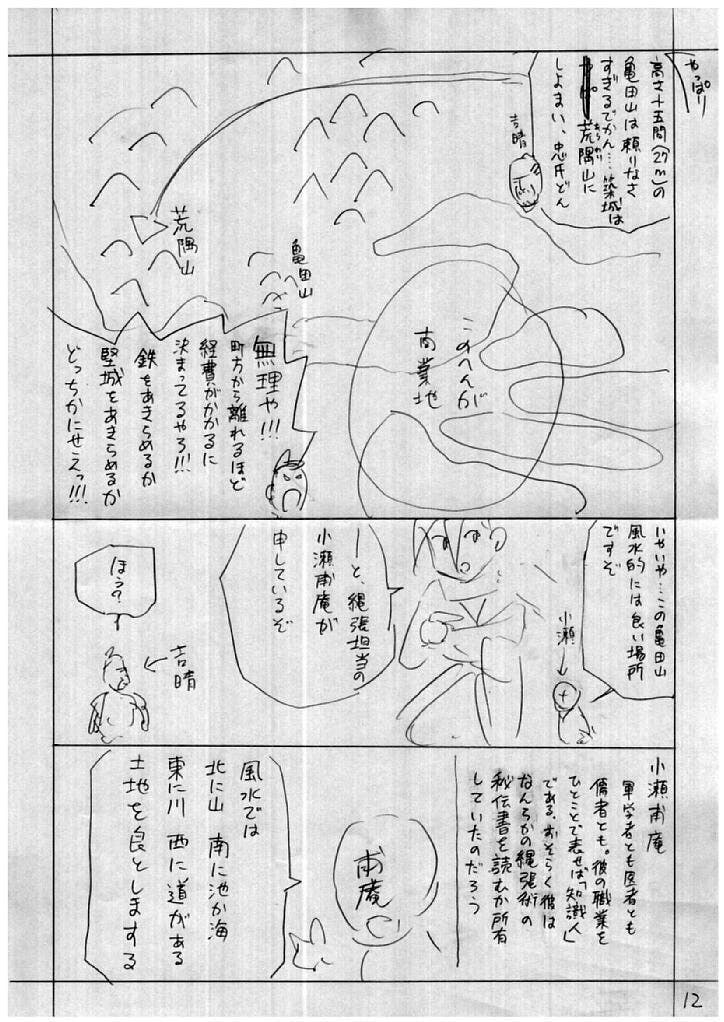 やっぱり
高さ十五間(27m)の
亀田山は頼りなさ
すぎるでかん…築城は
荒隅山に
あらわり
しよまい、忠氏どん
吉晴
荒隅山
亀田山
このへんが
商業地
無理や!!!
町方から離れるほど
経費がかかるに
決まってるやろ!!!
鉄をあきらめるか
堅城をあきらめるか
どっちかにせえっ!!!
いやいや…この亀田山
風水的には良い場所
ですぞ
小瀬
ーと、縄張担当の
小瀬甫庵が
申しているぞ
ほう?
吉晴
小瀬甫庵
軍学者とも医者とも
儒者とも。彼の職業を
ひとことで表せば「知識人」
である。おそらく彼は
なんらかの縄張術の
秘伝書を読むか所有
していたのだろう
甫庵
風水では
北に山 南に池か海
東に川 西に道がある
土地を良としまする
12